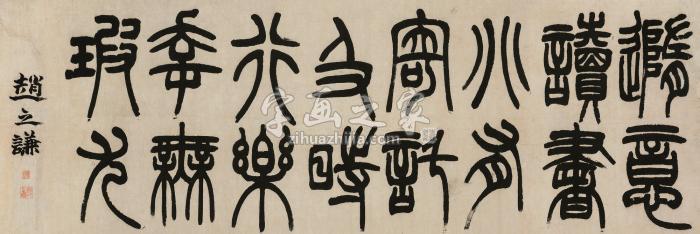 隨意
讀書
小有
寄託
及時
行樂
幸無
瑕尤
趙之謙
字画之家
zihuazhijia.com